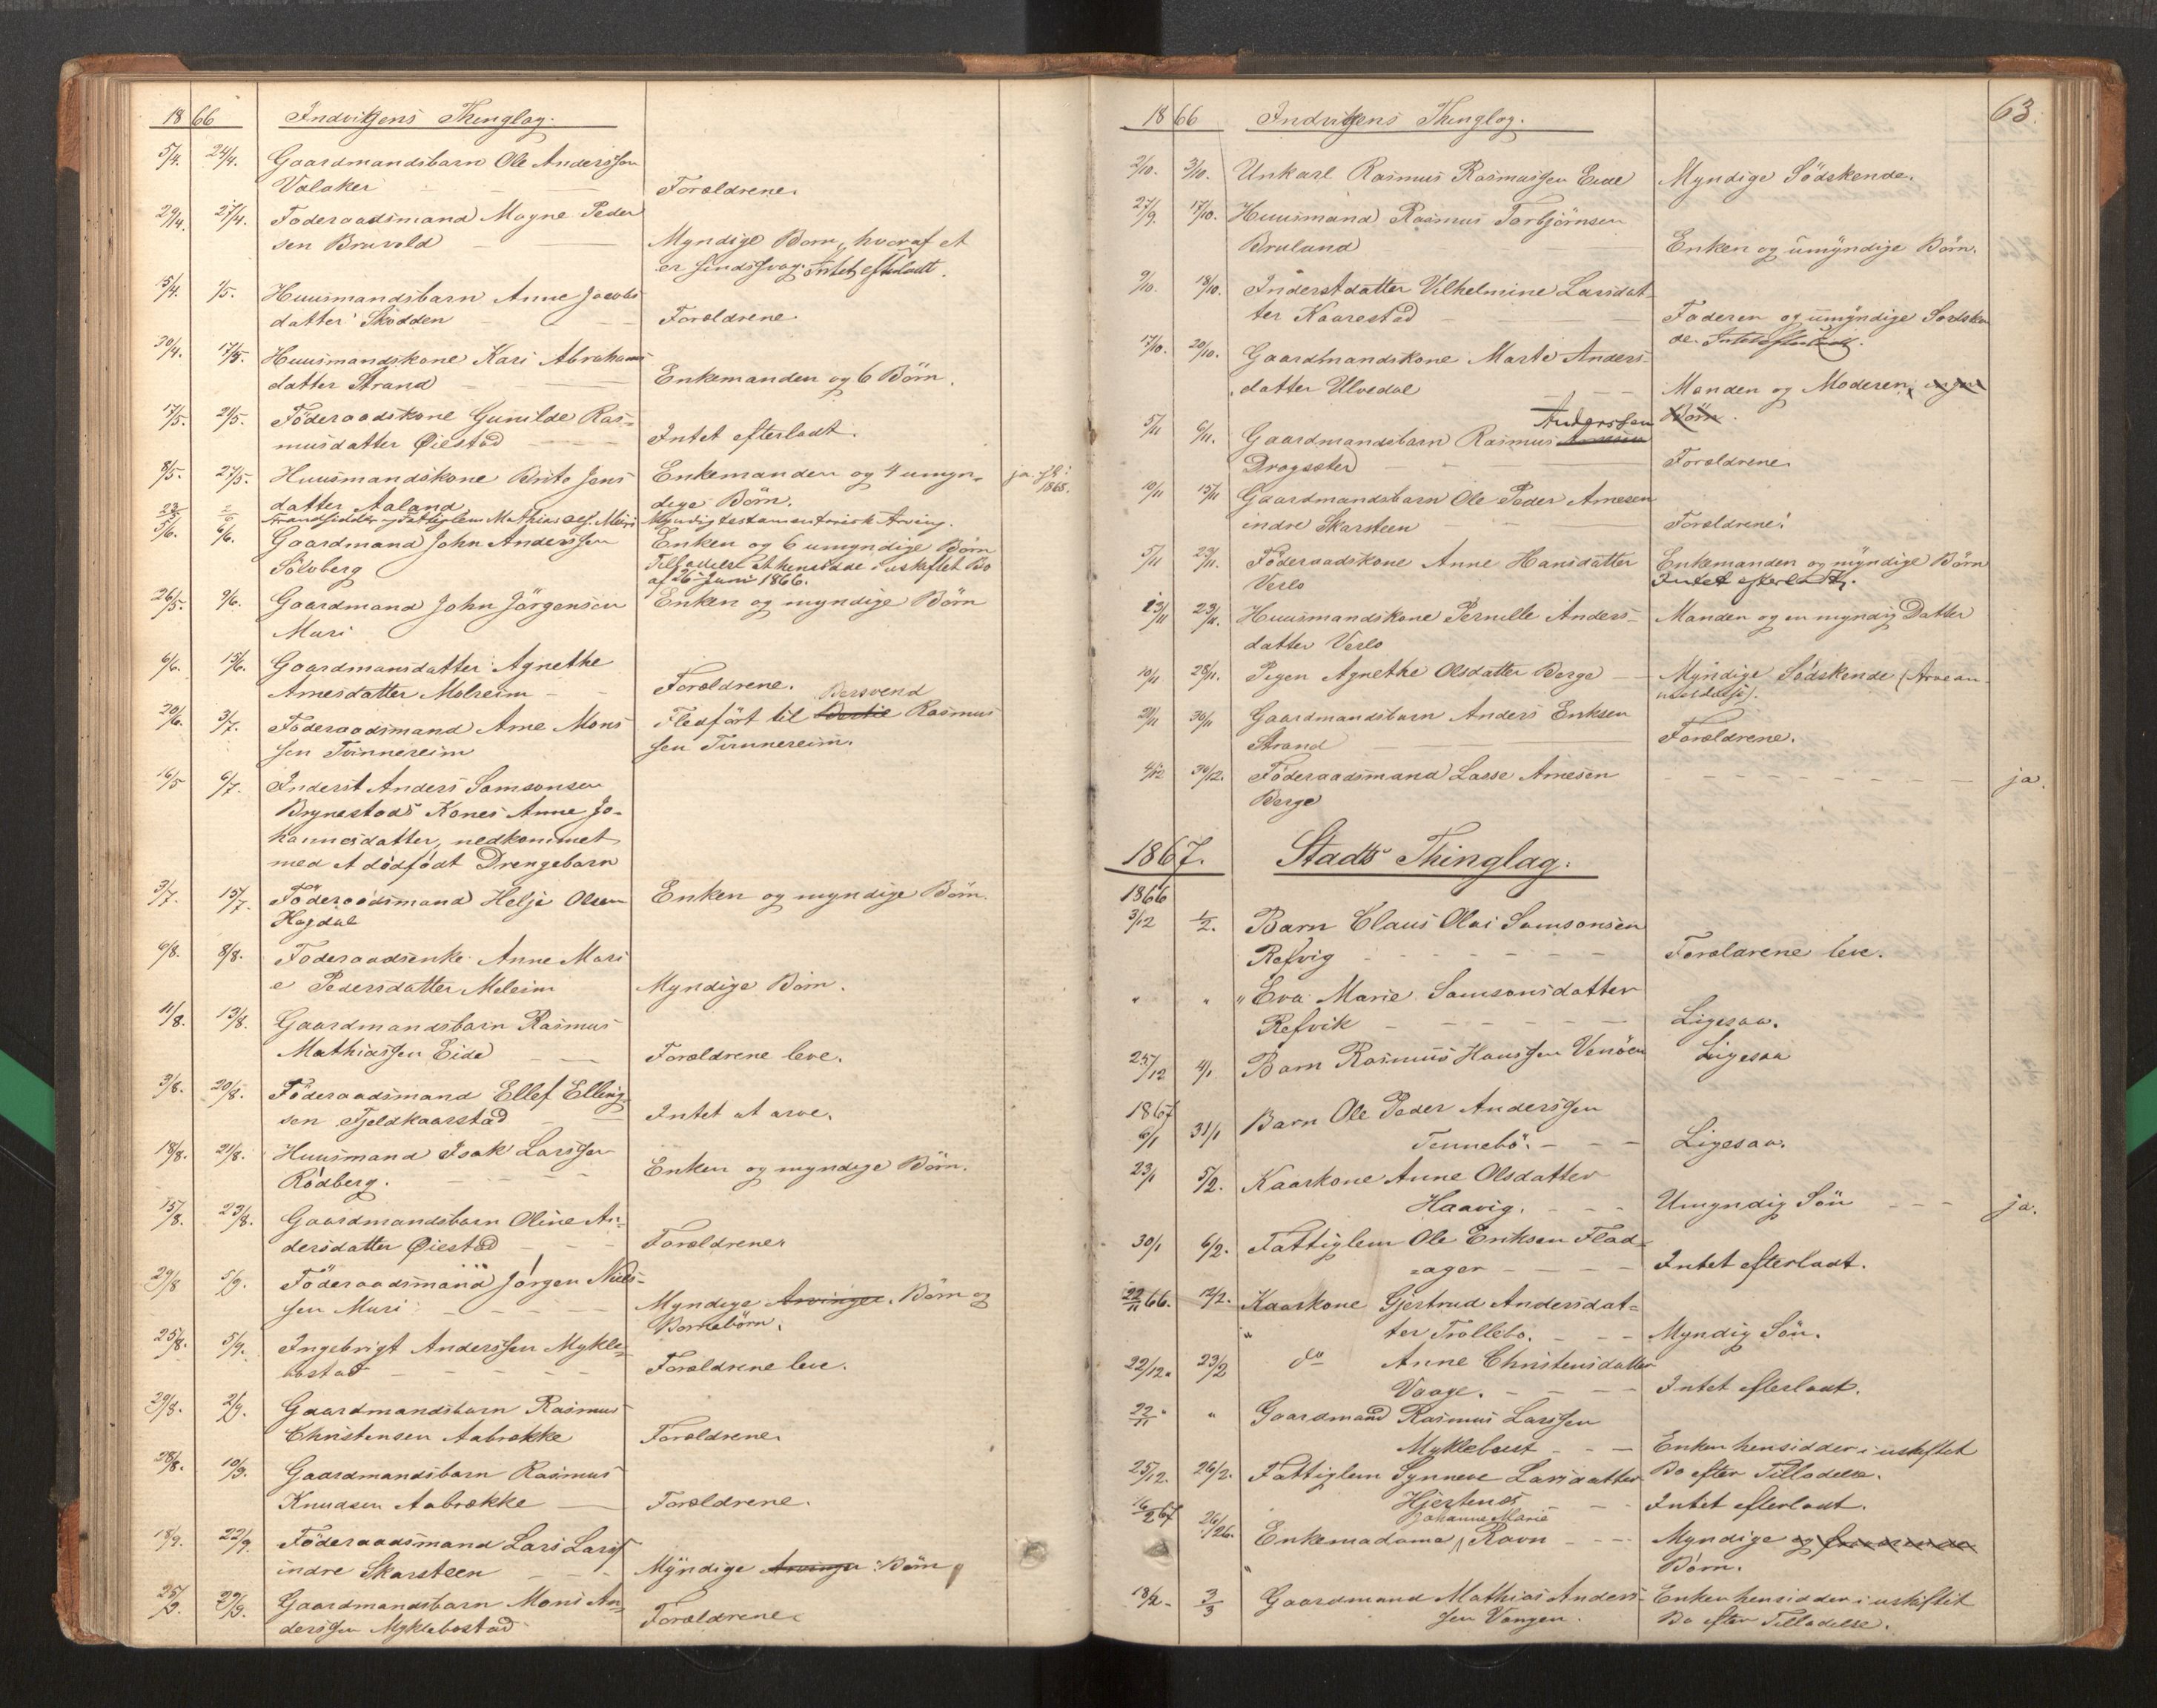 1866 Indvigens Thinglag.
5/4. 24/4. Gaardmandsbarn Ole Anderssen
Valaker - - Forældrene.
29/4. 27/4. Föderaadsmand Magne Peder
sen Bruvold - Myndige Børn, hvoraf et
er sindssvag. Intet efterladt.
15/4. 1/5. Huusmandsbarn Anne Jacobs
datter Sködden - Forældrene.
30/4. 17/5. Huusmandskone Kari Abrahams
datter Strand - Enkemanden og 6 Börn.
17/5. 21/5. Föderaadskone Gunilde Ras-
musdatter Øiestad - Intet efterladt.
8/5. 27/5. Huusmandskone Brite Jens Enkemanden og 4 umyn- ja.
1868.
datter Aaland dige Börn.
Strandsidder og Fattiglem Mathias Myndig testamentarisk Arving.
5/6. 6/6. Gaardmand John Anderssen Enken og 6 umyndige Börn
Sölvberg Tilladelse at hensidde i uskiftet Bo
af 26 Juni 1866.
26/5. 9/6. Gaardmand John Jörgensen Enken og myndige Börn
Muri
6/6. 15/6. Gaardmansdatter Agnethe
Arnesdatter Melheim - Forældrene.
Bersvend
20/6. 3/7. Föderaadsmand Arne Mons Fledfört til Bertil Rasmus
sen Tvinnereim sen Tvinnereim.
16/5 6/7. Inderst Anders Samsonsen
Brynestads Kones Anne Jo-
hannesdatter, nedkommet
med et dödfödt Drengebarn
3/7. 15/7. Föderaadsmand Helje Olsen Enken og myndige Börn.
Hagdal
6/8. 8/8. Föderaadsenke Anne Mari
e Pedersdatter Meleim Myndige Börn.
11/8. 13/8. Gaardmandsbarn Rasmus
Mathiassen Eide - Forældrene leve.
3/8. 20/8. Föderaadsmand Ellef Elling
sen Fjeldkaarstad - Intet at arve.
18/8. 21/8. Huusmand Isak Larssen
Rödberg. - Enken og myndige Börn.
15/8. 23/8. Gaardmandsbarn Oline An-
dersdatter Øiestad - Forældrene
29/8 5/9. Föderaadsmand Jörgen Niels-
sen Muri - Myndige Arvinger. Börn og
Børnebörn.
25/8. 5/9. Ingebrigt Anderssen Mykle-
bostad - Forældrene leve.
29/8. 2/9. Gaardmandsbarn Rasmus
Christensen Aabrække Forældrene
28/8. 10/9. Gaardmandsbarn Rasmus
Knudsen Aabrække - Forældrene.
18/9. 22/9. Föderaadsmand Lars Larss
indre Skarsteen - Myndige Arvinger Börn
25/9. 29/9. Gaardmandsbarn Mons An-
derssen Myklebostad Forældrene
63.
1866 Indvigens Thinglag.
2/10. 3/10. Unkarl Rasmus Rasmussen Eide Myndige Södskende.
27/9. 17/10. Huusmand Rasmus Torbjörnsen
Bruland Enken og umyndige Börn.
9/10. 18/10. Inderstdatter Vilhelmine Larsdat-
ter Kaarestad - Faderen og umyndige Södsken
de. Intet efterladt.
17/10. 20/10. Gaardmandskone Marte Anders
datter Ulvedal - Manden og Moderen, ingen
Börn.
Anderssen
5/11 6/11. Gaardmandsbarn Rasmus
Dragsæter - Forældrene
10/11 15/11 Gaardmandsbarn Ole Peder Arnesen
indre Skarsteen - Forældrene.
5/11 23/11. Föderaadskone Anne Hansdatter Enkemanden og myndige Börn
Verlo Intet efterladt.
13/11 23/11. Huusmandskone Pernille Anders- Manden og en myndig Datter
datter Verlo
10/11 28/11. Pigen Agnethe Olsdatter Berge - Myndige Södskende (Arvean-
meldelse).
21/11 30/11 Gaardmandsbarn Anders Eriksen
Strand - Forældrene.
4/12 30/12. Föderaadsmand Lasse Arnesen - ja.
Berge
1867. Stads Thinglag.
1866
3/12 1/2. Barn Claus Olai Samsonsen
Refvig - Forældrene leve.
" " " Eva Marie Samsonsdatter
Refvik - Ligesaa.
25/12 4/1 Barn Rasmus Hanssen Venöen Ligesaa
1867
6/1 31/1 Barn Ole Peder Anderssen
Tennebö. - Ligesaa.
23/1 5/2. Kaarkone Anne Olsdatter
Haavig. - Umyndig Sön - ja.
30/1 6/2. Fattiglem Ole Eriksen Flad-
=ager - Intet efterladt.
22/11 66. 12/2. Kaarkone Gjertrud Andersdat=
" ter Trollebø. - Myndig Sön.
22/12. 23/2 do Anne Christensdatter
Vaage. - Intet efterladt.
22/11 " " Gaardmand Rasmus Larssen
Myklebust - Enken hensidder i uskiftet
25/12. 26/2. Fattiglem Synneve Larsdatter Bo efter Tilladelse.
Hjertenæs - Intet efterladt.
Johanne Marie
16/2 67 26/2. Enkemadame Ravn - Myndige og
" Børn.
18/2. 3/3 Gaardmand Mathias Anders- Enken hensidder i uskiftet
sen Vangen. Bo efter Tilladelse.